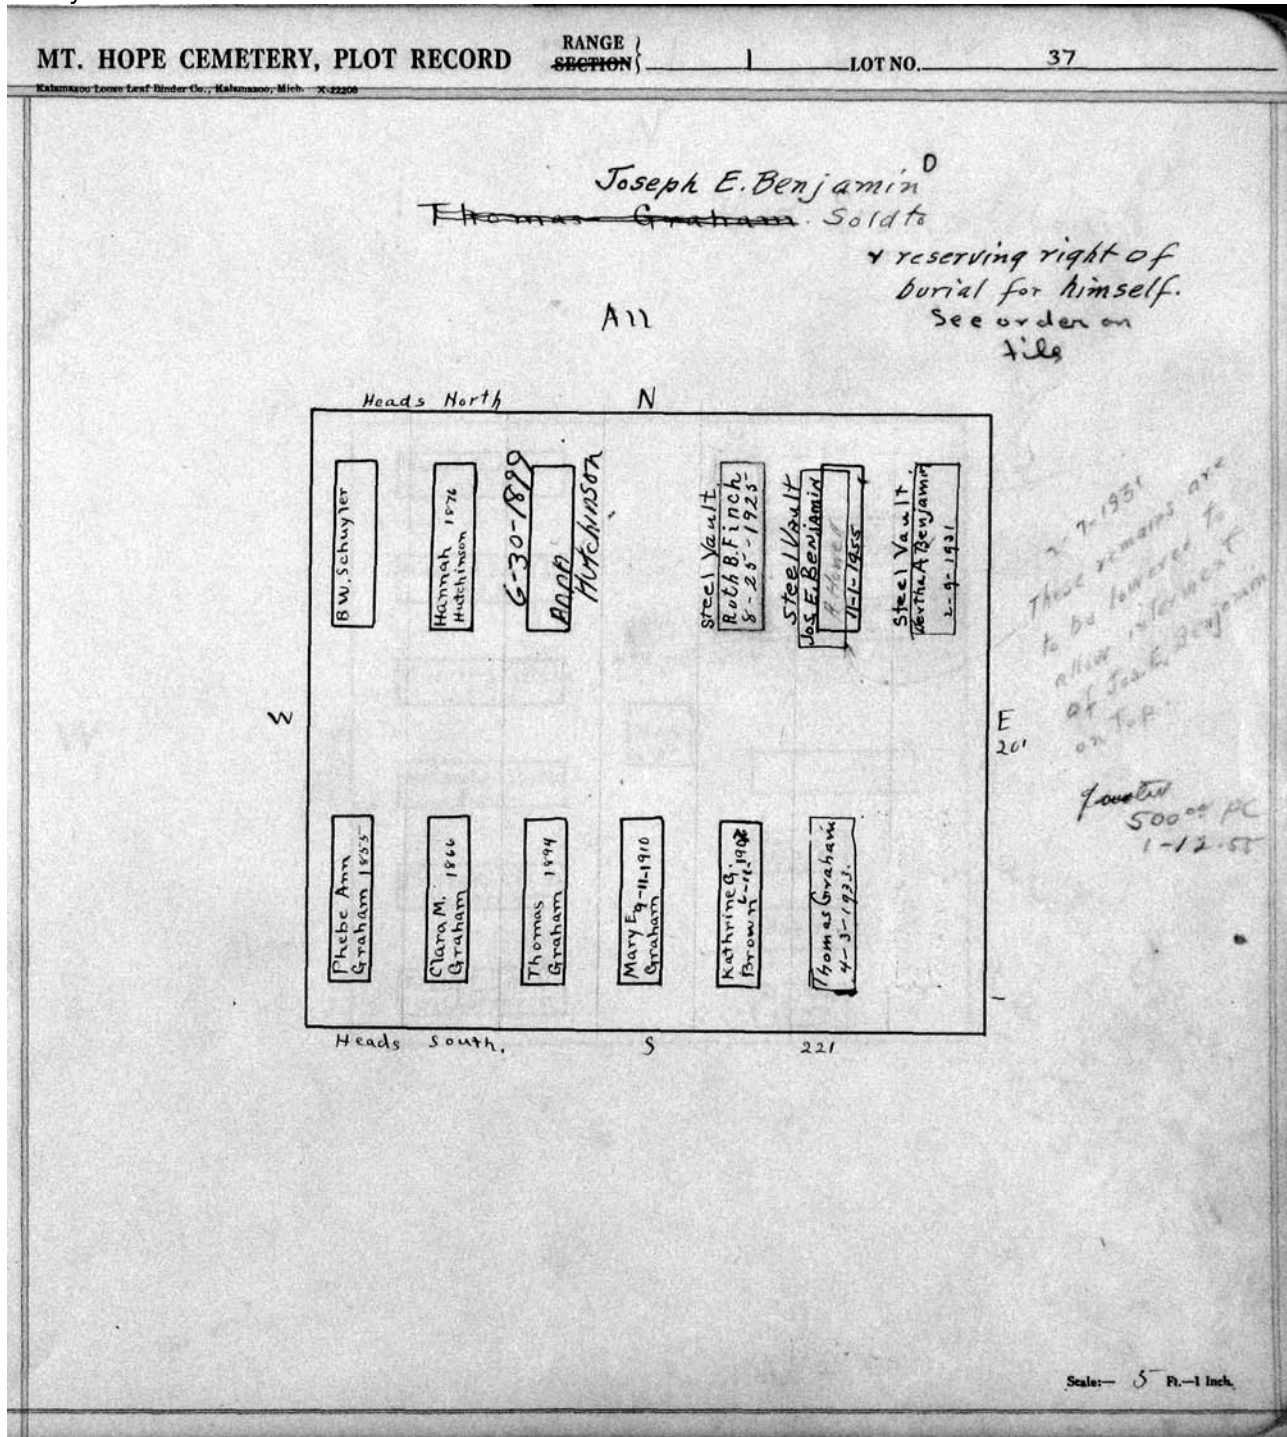 MT. HOPE CEMETERY, PLOT RECORD
RANGE
SECTION
1
LOT NO. 37
Kalamazoo Loose Leaf Binder Co., Kalamazoo, Mich. X-22208
Joseph E. Benjamin
Thomas Graham. Sold to
reserving right of
burial for himself.
See order on
file
All
Heads North
N
B W. Schuyler
Hannah 1876
Hutchinson
6-30-1899
Anna
Hutchinson
Steel Vault
Ruth B. Finch
8-25-1925
Steel Vault
Jos. E. Benjamin
11-1-1955
Steel Vault.
Bertha A Benjamin
2-9-1931
-7-1931
These remains are
to be lowered to
allow interment
of Jos. E. Benjamin
on Top.
W
E
201
500.00 PC
1-12-55
Phebe Ann
Graham 1855
Clara M.
Graham 1866
Thomas
Graham 1894
Mary E. 9-11-1910
Graham
Kathrine G.
Brown
Thomas Graham
4-3-1933.
Heads South.
S
221
Scale:— 5 Ft.—1 Inch.